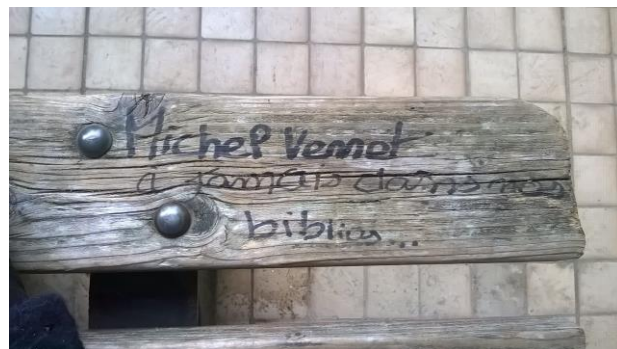 Michel Vernet
à jamais dans nos
biblios...